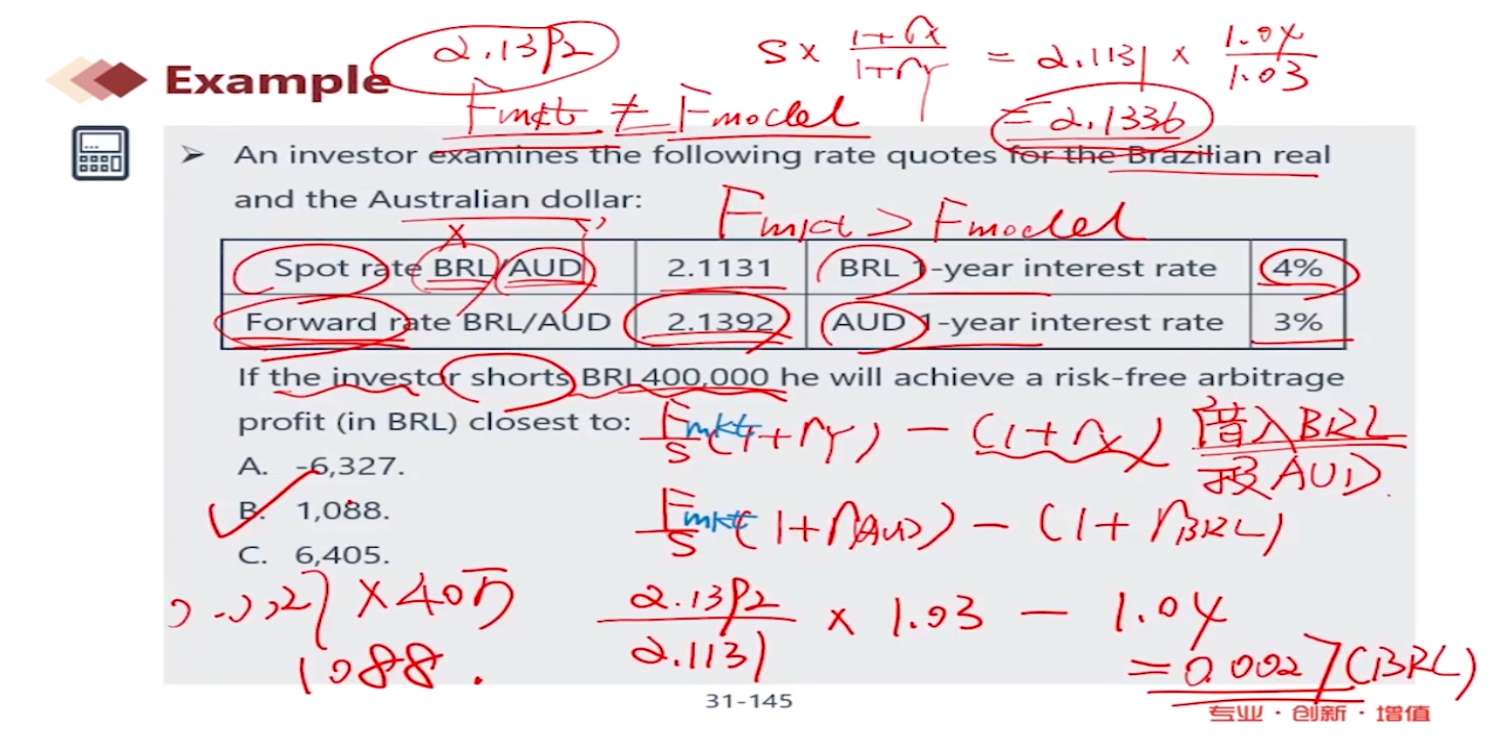 2.1392
S × (1+rx)/(1+ry) = 2.1131 × 1.04/1.03
Example
Fmkt ≠ Fmodel
= 2.1336
➤ An investor examines the following rate quotes for the Brazilian real
and the Australian dollar:
Fmkt > Fmodel
x y
Spot rate BRL/AUD 2.1131 BRL 1-year interest rate 4%
Forward rate BRL/AUD 2.1392 AUD 1-year interest rate 3%
If the investor shorts BRL 400,000 he will achieve a risk-free arbitrage
profit (in BRL) closest to:
Fmkt/S (1+ry) − (1+rx) 借入BRL
投AUD
A. -6,327.
B. 1,088.
Fmkt/S (1+rAUD) − (1+rBRL)
C. 6,405.
0.0027 × 40万
2.1392/2.1131 × 1.03 − 1.04
1088.
= 0.0027 (BRL)
31-145
专业·创新·增值